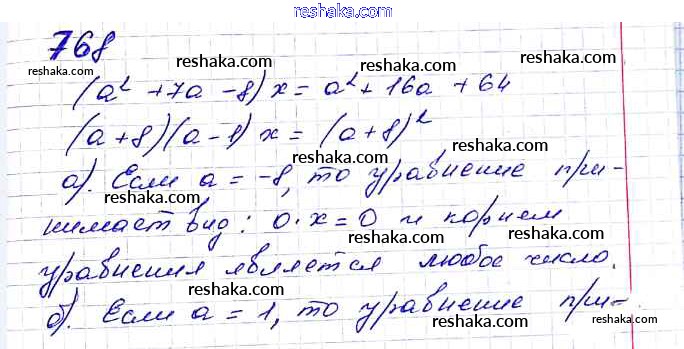 www.reshaka.com
768
reshaka.com reshaka.com reshaka.com
(a² + 7a - 8)x = a² + 16a + 64
reshaka.com reshaka.com
(a+8)(a-1)x = (a+8)²
а). Если a = -8, то уравнение при-
reshaka.com reshaka.com reshaka.com
нимает вид: 0·x=0 и корнем
reshaka.com reshaka.com
уравнения является любое число.
reshaka.com reshaka.com reshaka.com
б). Если a = 1, то уравнение при-
reshaka.com reshaka.com